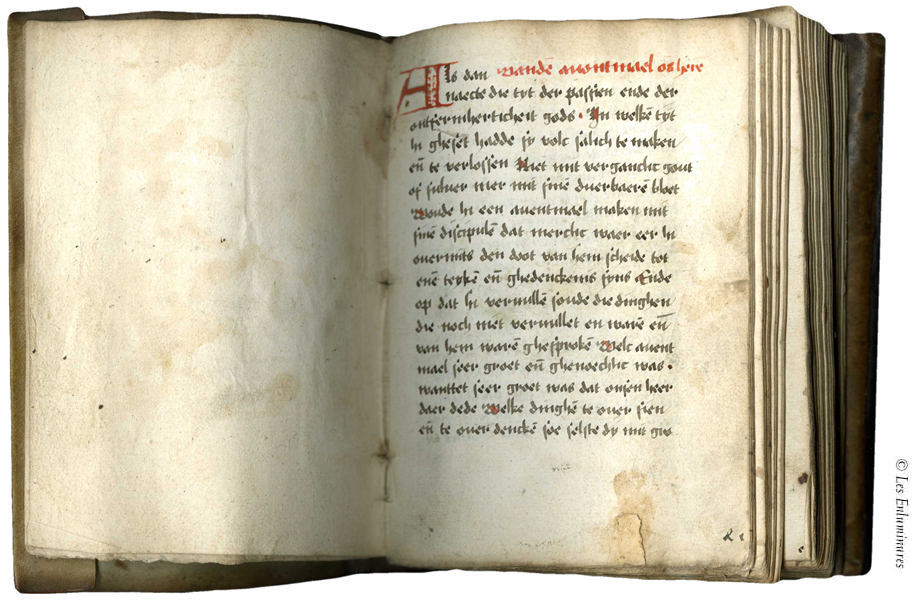 Als dan Vandē auontmael ons here
naecte die tyt der passien ende der
ontfermherticheit gods · In welkē tyt
hi gheset hadde sy volc salich te maken
eñ te verlossen Niet mit vergancht gout
of siluer mer mit sinē duerbaerē bloet
Woude hi een auentmael maken mit
sinē discipulē dat mercht waer eer hi
ouermits den doot van hem scheide tot
enē teykē eñ ghedenckenis syns Ende
op dat hi veruullē soude die dinghen
die noch niet veruullet en warē eñ
van hem warē ghesprokē Welc auent
mael seer groet eñ ghenoechlic was ·
wanttet seer groet was dat onsen heer
daer dede Welke dinghē te ouer sien
eñ te ouer denckē soe selste dy mit gro
© Les Enluminures